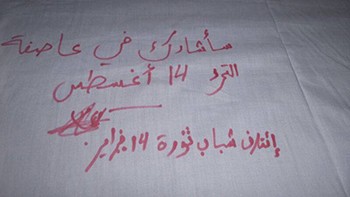 سأشارك في عاصفة
التمرد 14 أغسطس
إئتلاف شباب ثورة 14 فبراير